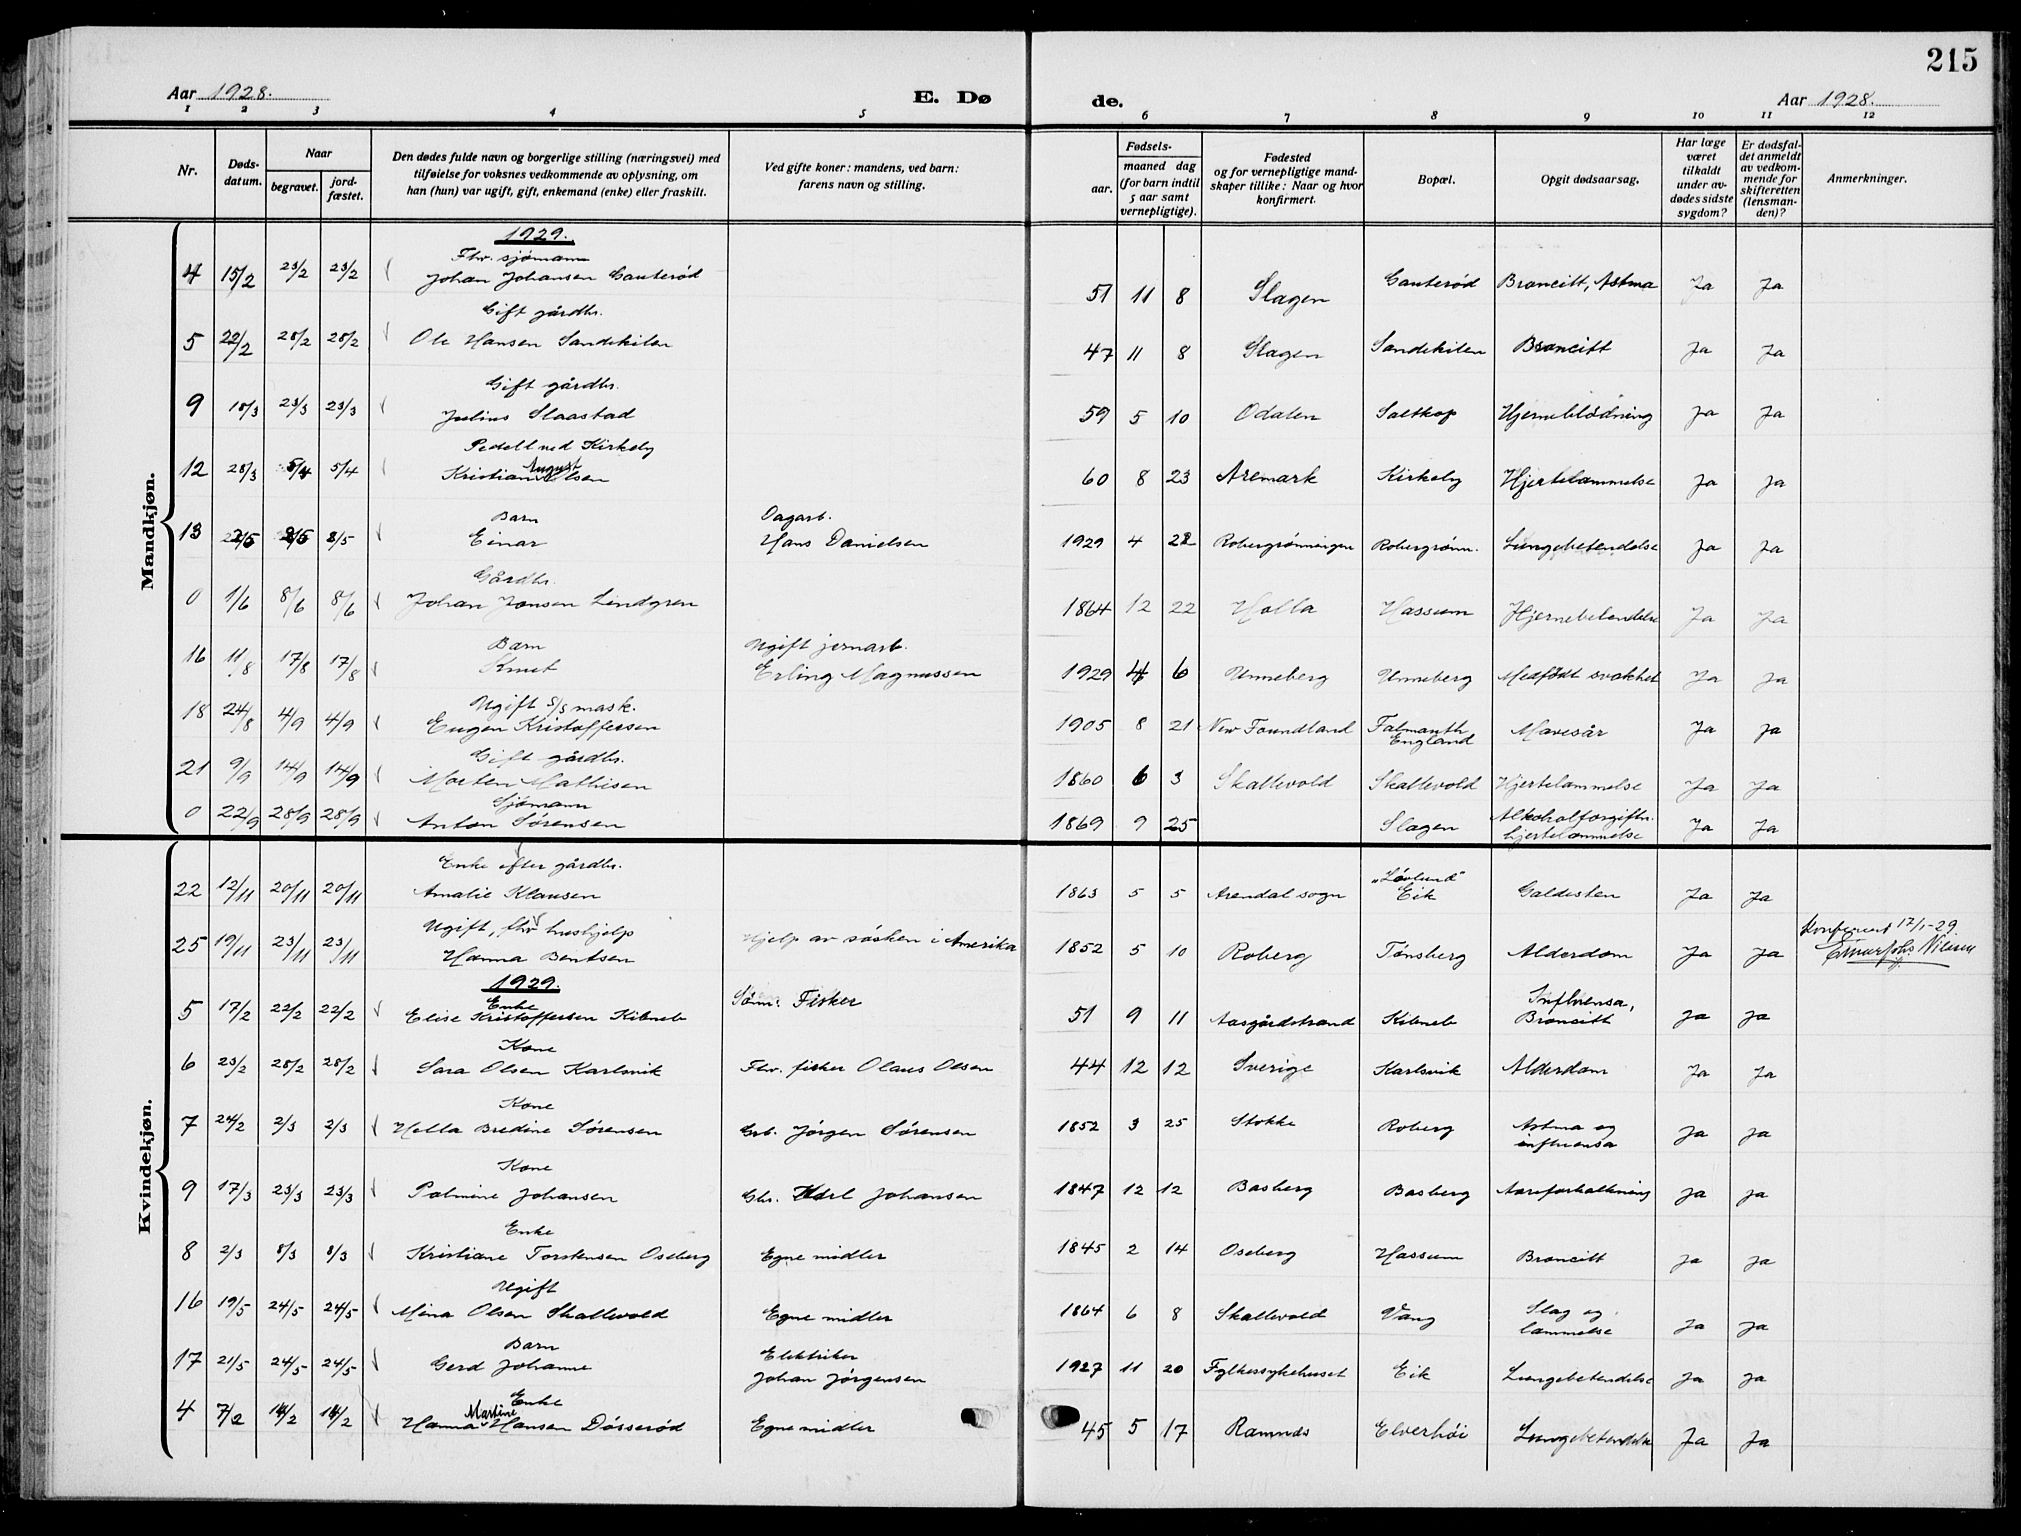 215
Aar 1928. E. Dø de. Aar 1928.
1 2 3 4 5 6 7 8 9 10 11 12
Nr. Døds-datum. Naar begravet. jord-fæstet. Den dødes fulde navn og borgerlige stilling (næringsvei) med tilføielse for voksnes vedkommende av oplysning, om han (hun) var ugift, gift, enkemand (enke) eller fraskilt. Ved gifte koner: mandens, ved barn: farens navn og stilling. Fødsels- aar. maaned dag (for barn indtil 5 aar samt vernepligtige). Fødested og for vernepligtige mand-skaper tillike: Naar og hvor konfirmert. Bopæl. Opgit dødsaarsag. Har læge været tilkaldt under av-dødes sidste sygdom? Er dødsfal-det anmeldt av vedkom-mende for skifteretten (lensman-den)? Anmerkninger.
Mandkjøn.
1929.
Fhv. sjømann
4 15/2 23/2 23/2 Johan Johansen Gauterød 51 11 8 Slagen Gauterød Broncitt, Astma Ja Ja
Gift gårdbr.
5 22/2 28/2 28/2 Ole Hansen Sandekilen 47 11 8 Slagen Sandekilen Broncitt Ja Ja
Gift gårdbr.
9 18/3 23/3 23/3 Julius Slaastad 59 5 10 Odalen Saltkop Hjerneblødning Ja Ja
Pedell ved Kirkeby
12 28/3 5/4 5/4 Kristian August Olsen 60 8 23 Aremark Kirkeby Hjertelammelse Ja Ja
Barn Dagarb.
13 2/5 8/5 8/5 Einar Hans Danielsen 1929 4 28 Robergrønningen Robergrønn. Lungebetendelse Ja Ja
Gårdbr.
0 1/6 8/6 8/6 Johan Jonsen Lindgren 1864 12 22 Holla Hassum Hjernebetendelse Ja Ja
Barn Ugift jernarb.
16 11/8 17/8 17/8 Knut Erling Magnussen 1929 4 6 Unneberg Unneberg Medfødt svakhet Ja Ja
Ugift S/S mask.
18 24/8 4/9 4/9 Eugen Kristoffersen 1905 8 21 New Foundland Falmanth England Mavesår Ja Ja
Gift gårdbr.
21 9/9 14/9 14/9 Morten Mathisen 1860 6 3 Skallevold Skallevold Hjertelammelse Ja Ja
Sjømann
0 22/9 28/9 28/9 Anton Sørensen 1869 9 25 Slagen Alkoholforgiftn. hjertelammelse Ja Ja
Kvindekjøn.
Enke efter gårdbr.
22 12/11 20/11 20/11 Amalie Klausen 1863 5 5 Arendal sogn "Lövlund" Eik Galdesten Ja Ja
Ugift, fhv hushjelp
25 19/11 23/11 23/11 Hanna Bentsen Hjelp av søsken i Amerika 1852 5 10 Roberg Tønsberg Alderdom Ja Ja Konferert 17/1-29
1929.
Enke
5 17/2 22/2 22/2 Elise Kristoffersen Kilneb Sønn: Fisker 51 9 11 Aasgårdstrand Kilneb Influensa, Broncitt Ja Ja
Kone
6 23/2 28/2 28/2 Sara Olsen Karlsvik Fhv. fisker Olaus Olsen 44 12 12 Sverige Karlsvik Alderdom Ja Ja
Kone
7 24/2 2/3 2/3 Hella Bredine Sørensen Grb. Jørgen Sørensen 1852 3 25 Stokke Roberg Astma og influensa Ja Ja
Kone
9 17/3 23/3 23/3 Palmine Johansen Gbr. Karl Johansen 1847 12 12 Basberg Basberg Aareforkalkning Ja Ja
Enke
8 2/3 8/3 8/3 Kristiane Torstensen Oseberg Egne midler 1845 2 14 Oseberg Hassum Broncitt Ja Ja
Ugift
16 19/5 24/5 24/5 Mina Olsen Skallevold Egne midler 1864 6 8 Skallevold Vang Slag og lammelse Ja Ja
Barn Elektriker
17 21/5 24/5 24/5 Gerd Johanne Johan Jørgensen 1927 11 20 Fylkessykehuset Eik Lungebetendelse Ja Ja
Enke
4 7/2 14/2 14/2 Hanna Martine Hansen Døsserød Egne midler 45 5 17 Ramnes Elverhöi Lungebetendelse Ja Ja